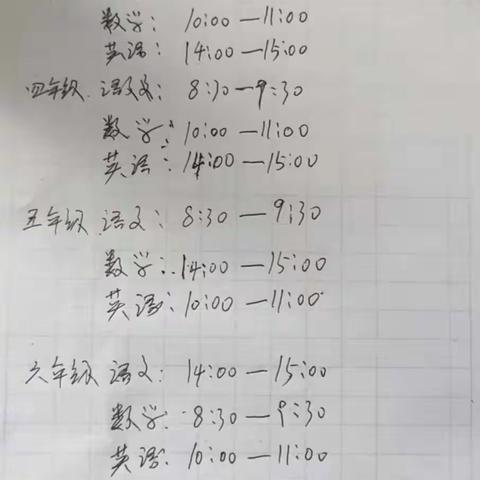 数学: 10:00—11:00
英语: 14:00—15:00
四年级 语文: 8:30—9:30
数学: 10:00—11:00
英语: 14:00—15:00
五年级 语文: 8:30—9:30
数学: 14:00—15:00
英语: 10:00—11:00
六年级 语文: 14:00—15:00
数学: 8:30—9:30
英语: 10:00—11:00